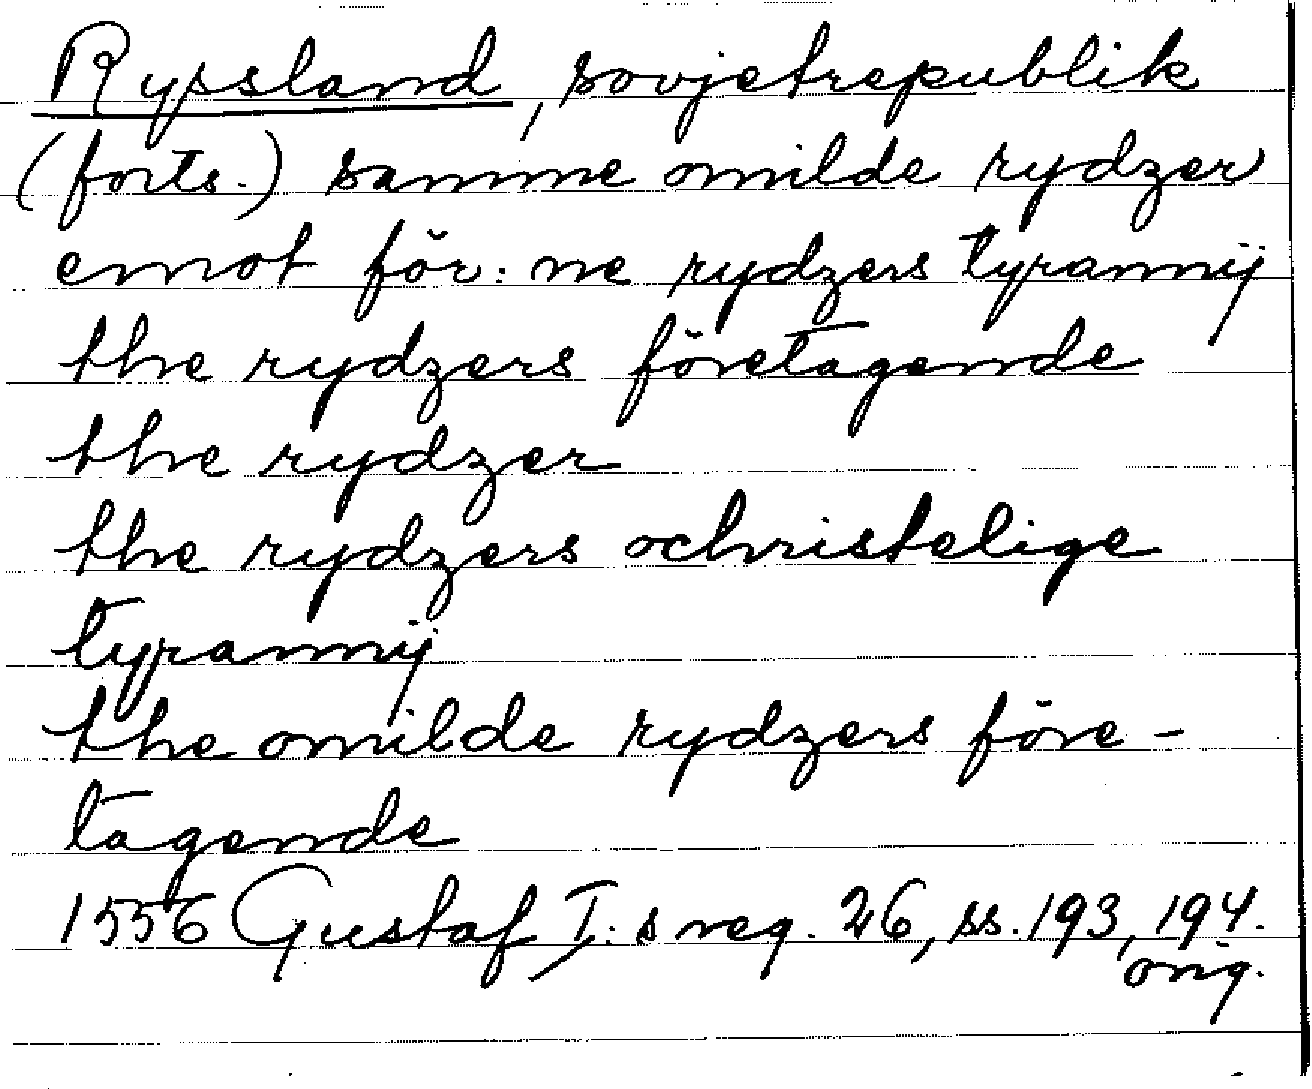 Ryssland, sovjetrepublik
(forts.) samme omilde rydzer
emot för:ne rydzers tyrannij
the rydzers företagende
the rydzer
the rydzers ochristelige
tyrannij
the omilde rydzers före-
tagende
1556 Gustaf I:s reg. 26, ss. 193, 194.
orig.